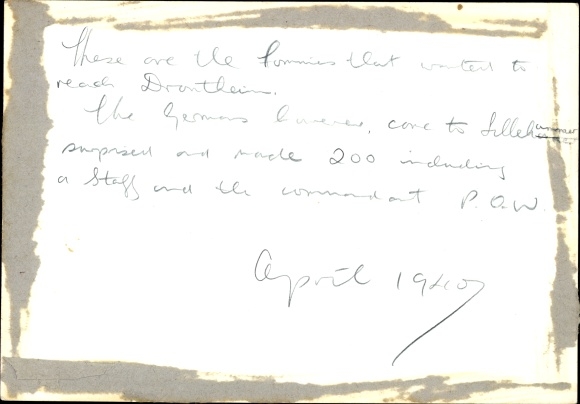 These are the Tommies that wanted to
reach Drontheim.
The Germans however, came to Lillehammer
surprised and made 200 including
a Staff and the commandant P.O.W.
April 1940